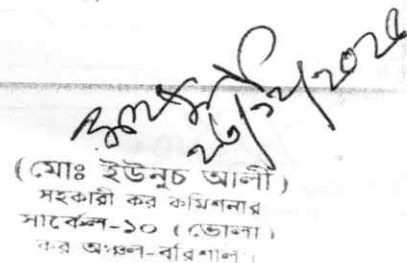 ২৩/১২/২০২৪
(মোঃ ইউনুচ আলী)
সহকারী কর কমিশনার
সার্কেল-১০ (ভোলা)
কর অঞ্চল-বরিশাল।